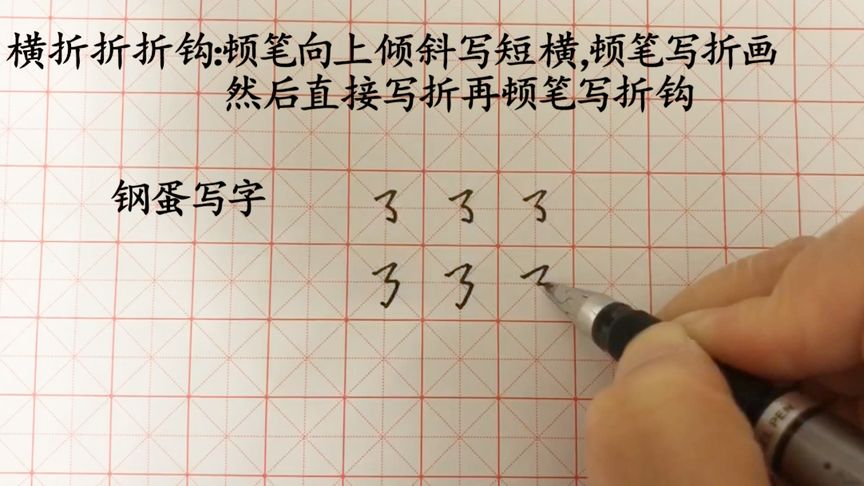 横折折折钩:顿笔向上倾斜写短横,顿笔写折画
然后直接写折再顿笔写折钩
钢蛋写字
㇡ ㇡ ㇡
㇡ ㇡
PEN